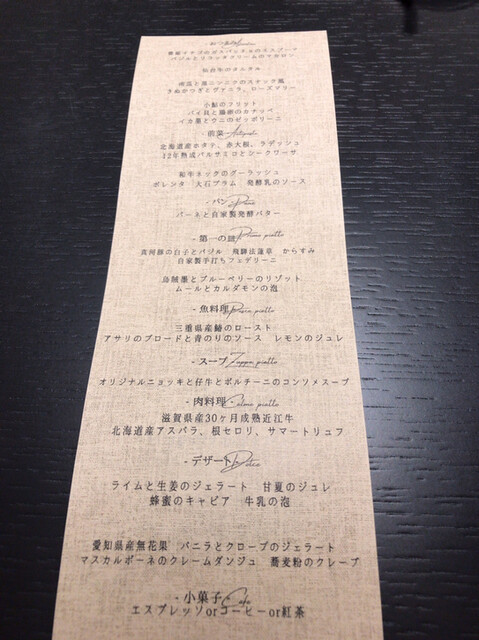 バジルとリコッタクリームのマカロン
仙台牛のタルタル
南瓜と黒ニンニクのスティック風
きぬかつぎとヴァニラ、ローズマリー
小鮎のフリット
バイ貝と腸樹のカチッペ
イカ墨とウニのゼッポリーニ
- 前菜 - Antipasto
北海道産ホタテ、赤大根、ラディッシュ
12年熟成バルサミコとシークワーサ
和牛ネックのグーラッシュ
ポレンタ 大石プラム 発酵乳のソース
- パン - Pane
パーネと自家製発酵バター
- 第一の皿 - Primo piatto
真河豚の白子とバジル 飛騨法蓮草 からすみ
自家製手打ちフェデリーニ
烏賊墨とブルーベリーのリゾット
ムールとカルダモンの泡
- 魚料理 - Pesce piatto
三重県産鰆のロースト
アサリのブロードと青のりのソース レモンのジュレ
- スープ - Zuppa piatto
オリジナルニョッキと仔牛とポルチーニのコンソメスープ
- 肉料理 - piatto
滋賀県産30ヶ月成熟近江牛
北海道産アスパラ、根セロリ、サマートリュフ
- デザート - Dolce
ライムと生姜のジェラート 甘夏のジュレ
蜂蜜のキャビア 牛乳の泡
愛知県産無花果 バニラとクローブのジェラート
マスカルポーネのクレームダンジュ 蕎麦粉のクレープ
- 小菓子 - Cafe
エスプレッソorコーヒーor紅茶